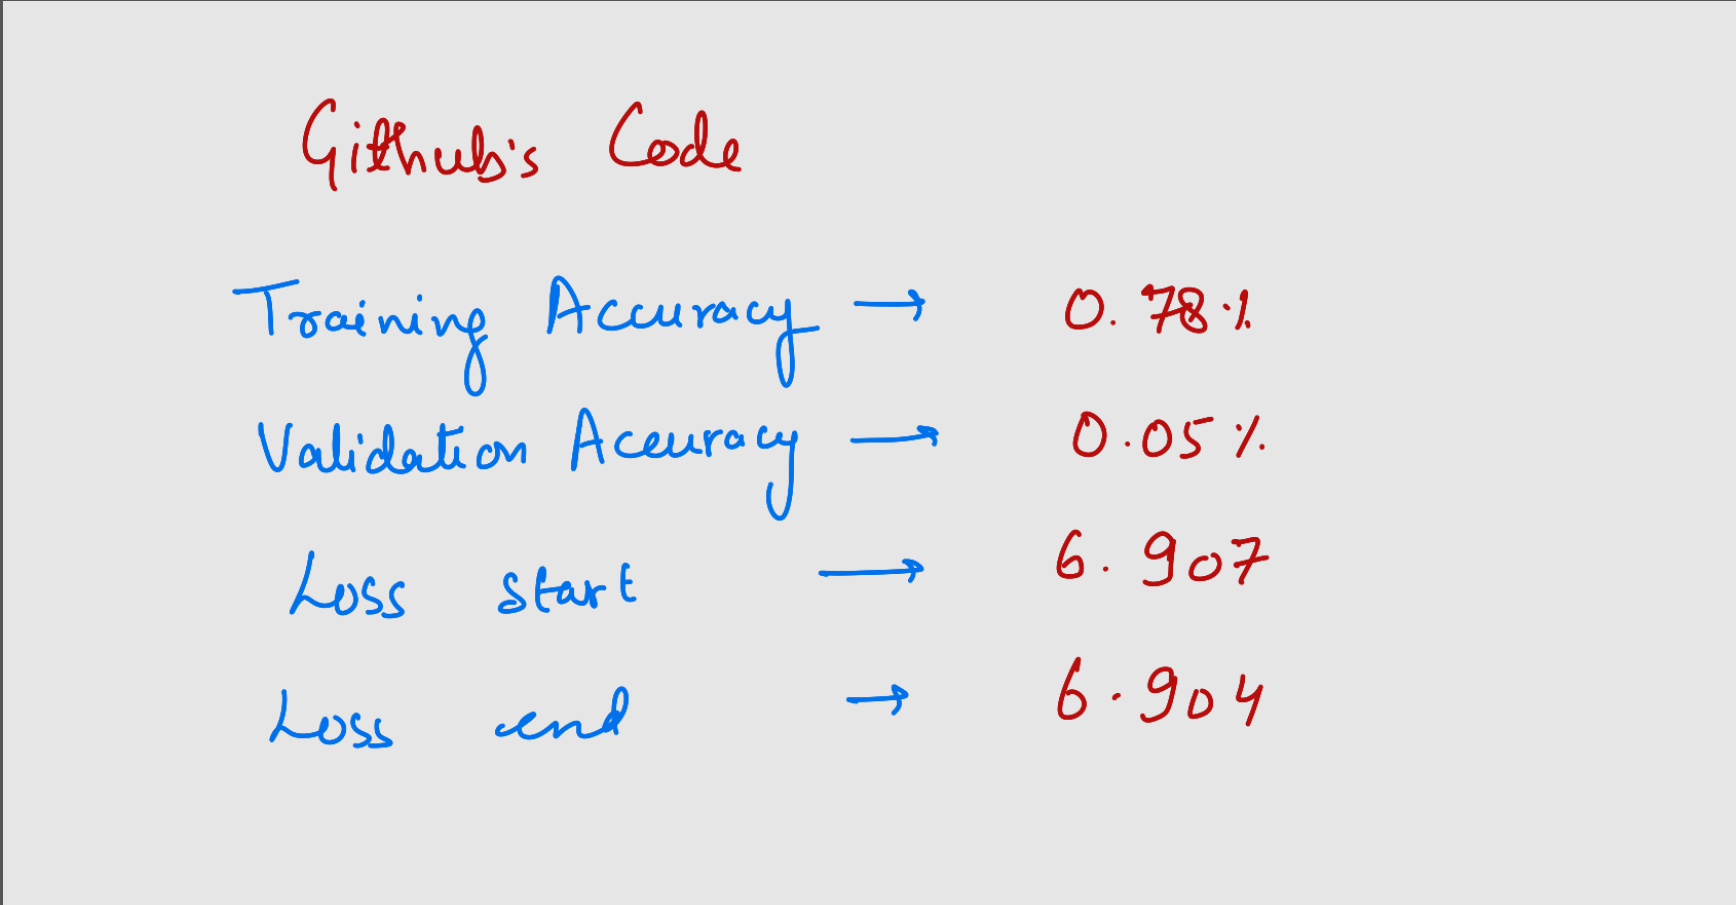 Github's Code
Training Accuracy → 0.78%
Validation Accuracy → 0.05%
Loss start → 6.907
Loss end → 6.904